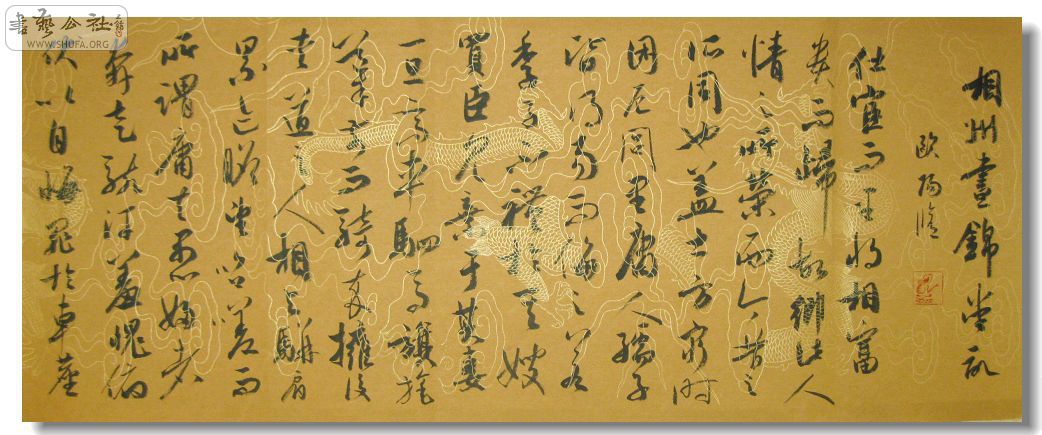 書藝公社
WWW.SHUFA.ORG
相州晝錦堂記
歐陽脩
仕宦而至將相富
貴而歸故鄉此人
情之所榮而今昔之
所同也蓋士方窮時
困厄閭里庸人孺子
皆得易而侮之若
季子不禮於其嫂
買臣見棄于其妻
一旦高車駟馬旗旄
導前而騎卒擁後
夾道之人相與駢肩
累跡瞻望咨嗟而
所謂庸夫愚婦者
奔走駭汗羞愧俯
伏以自悔罪於車塵